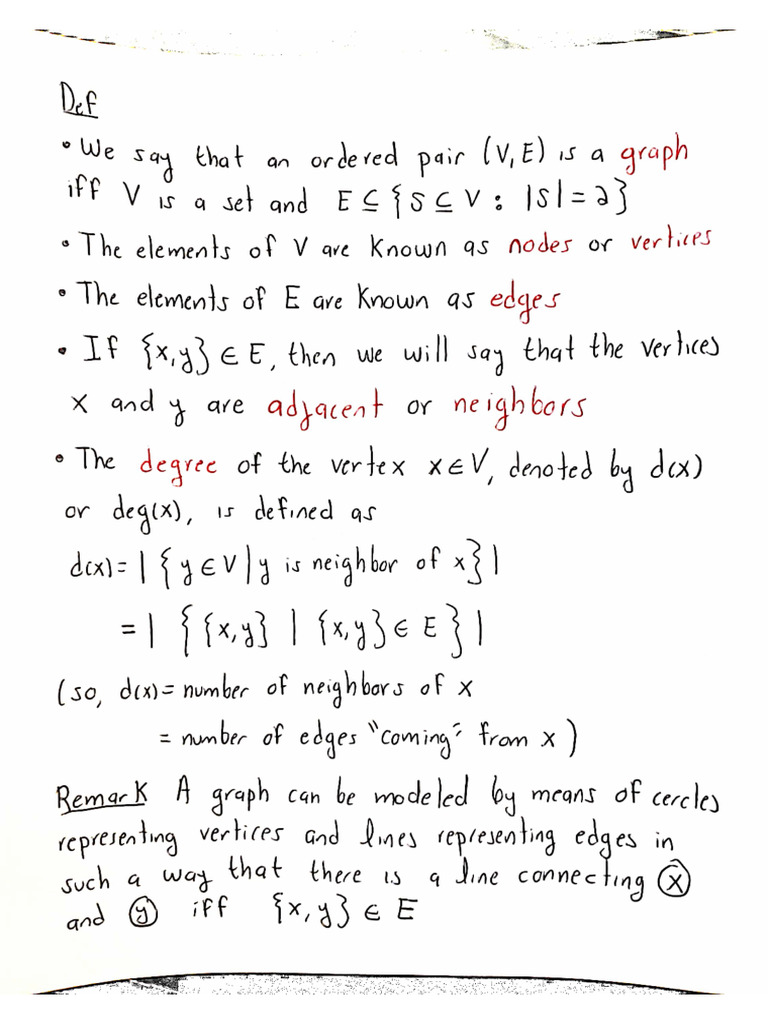 Def
• We say that an ordered pair (V,E) is a graph
iff V is a set and E ⊆ {S ⊆ V : |S| = 2}
• The elements of V are known as nodes or vertices
• The elements of E are known as edges
• If {x,y} ∈ E, then we will say that the vertices
x and y are adjacent or neighbors
• The degree of the vertex x ∈ V, denoted by d(x)
or deg(x), is defined as
d(x) = | { y ∈ V | y is neighbor of x } |
= | { {x,y} | {x,y} ∈ E } |
(so, d(x) = number of neighbors of x
= number of edges "coming" from x )
Remark A graph can be modeled by means of cercles
representing vertices and lines representing edges in
such a way that there is a line connecting ⓧ
and ⓨ iff {x,y} ∈ E